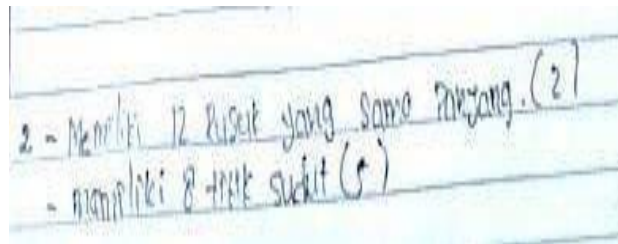 2 - Memiliki 12 Rusuk yang sama Panjang. (2)
- memiliki 8 titik sudut (5)